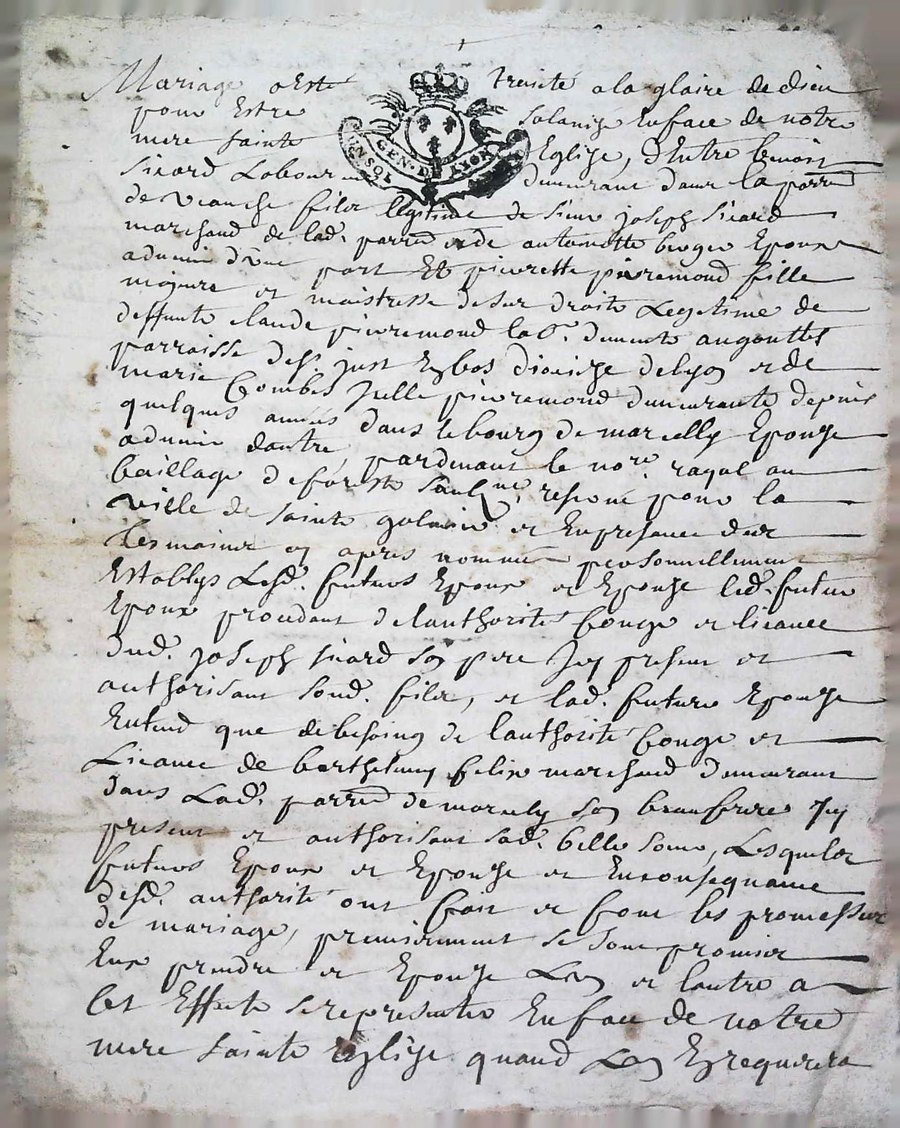 Mariage a Esté traité a la gloire de dieu
pour Estre solanisé Enface de notre
mere sainte Eglise, d'Entre benoist
sicard Laboureur demeurant dans la parre
de fils legitime de sieur joseph sicard
marchand de lad. parre et de antoinette Epoux
advenir d'une part Et pierrette pieremond fille
majeure et maistresse de ses droits Legetime de
deffunte claude pieremond lab.r demeurte augouttes
parroisse de st. just En bas diocize de lyon et de
marie Combes Jcelle pieremond demeurante depuis
quelques années dans le bourg de marcilly Epouze
advenir d'autre pardevant le nore. royal au
baillage de foreste resour pour la
ville de sainte galmier et En presance des
tesmoins cy apres nommés personnellement
Establys Lesd. futurs Epoux et Epouze led. futur
Epoux procedant de lauthorité Conge et licance
dud. joseph sicard son pere Jcy present et
authorisant sond. fils, et lad. future Epouze
Entend que de besoing de lauthorité Conge et
Licance de barthelemy felix marchand demeurant
dans Lad. parre de marcilly son beaufrere Jcy
present et authorisant sad. belle soeur, Lesquels
futurs Epoux et Epouze et En consequance
desd. authorité ont fait et font les promesses
de mariage, premierement se sont promis
Eux prendre et Epouze Lun et lautre a
Cet Effete se representer Enface de notre
mere sainte Eglise quand Lun En requerera
UN SOL GEN. DE LYON